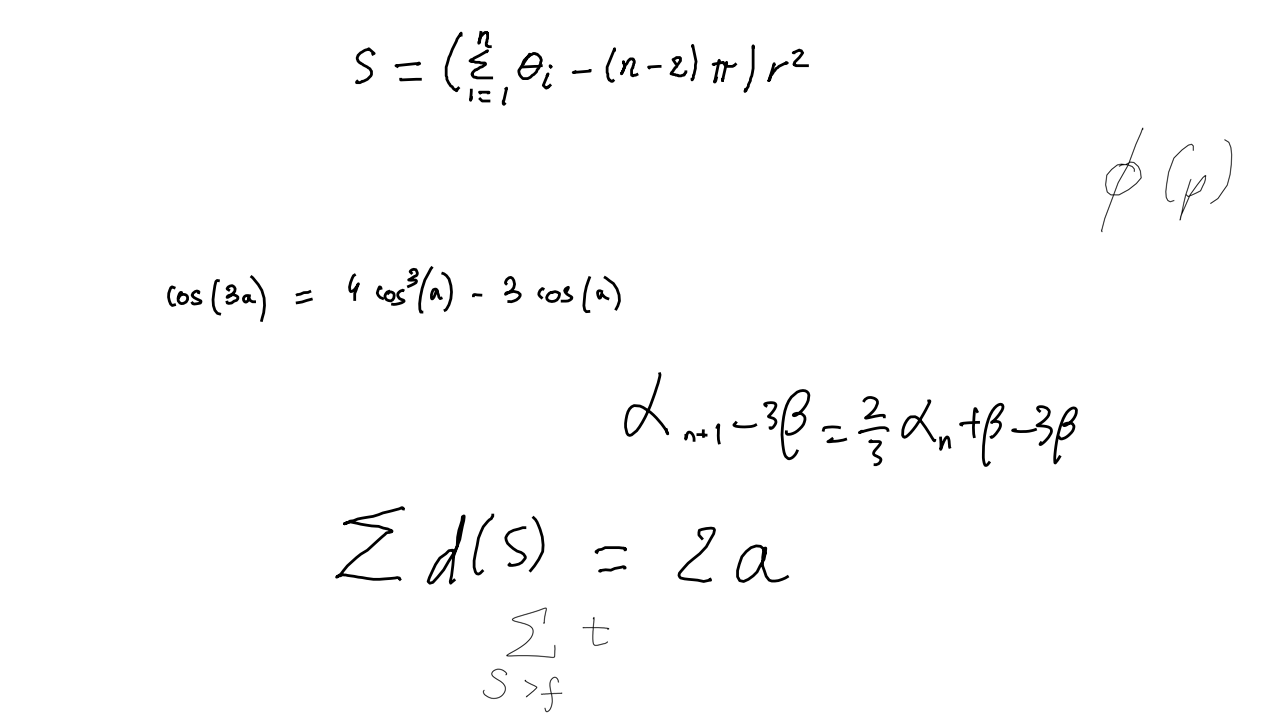 S = (\sum_{i=1}^{n} θ_i - (n-2) π) r^2
ϕ(p)
cos(3a) = 4 cos^3(a) - 3 cos(a)
α_{n+1} - 3β = \frac{2}{3} α_n + β - 3β
\sum d(S) = 2a
\sum_{S>f} t